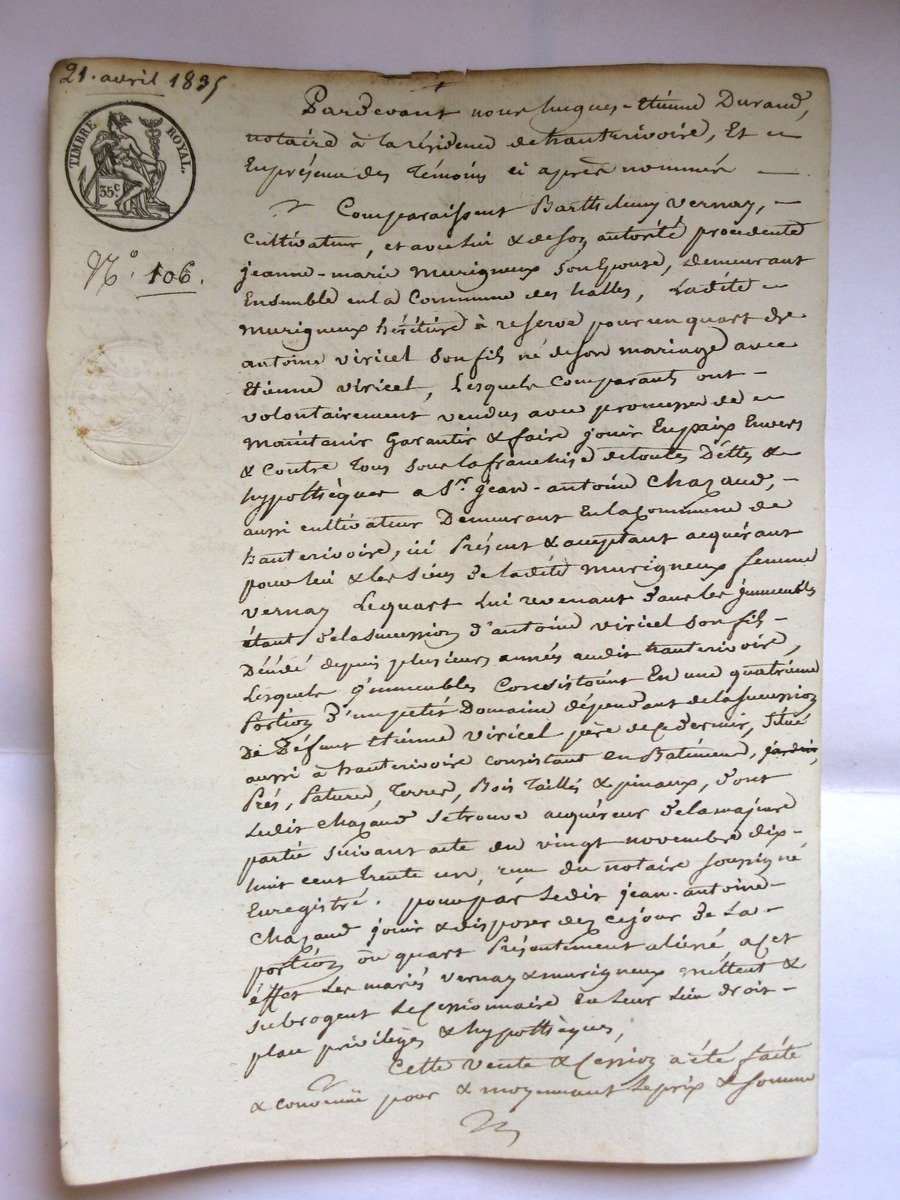 21. avril 1835
TIMBRE ROYAL.
35 c
N.° 106.
Pardevant nous hugues-Etienne Durand,
notaire à la résidence de hauterivoire, Et en
En présence des Témoins ci après nommés
Comparaissent Barthelemy Vernay,
Cultivateur, et avec lui & de son autorité procédante
jeanne-marie Murigneux Son Epouse, demeurant
Ensemble en la Commune des halles, Ladite
Murigneux héritière à reserve pour un quart de
antoine viricel Son fils né de son mariage avec
Etienne viricel, Lesquels Comparants ont
volontairement vendus avec promesse de
Maintenir Garantir & faire jouir En paix Envers
& Contre Tous Sous la franchise de toutes Dettes &
hypothèques a S.r jean-antoine Chazaud,
aussi cultivateur Demeurant En la Commune de
hauterivoire, ici Présent & acceptant acquérant
pour lui & les Siens De la dite Murigneux femme
vernay Le quart Lui revenant Dans les jmmeubles
étant De la Succession d'antoine viricel Son fils
Décédé depuis plusieurs années audit hauterivoire,
Lesquels jmmeubles Consistant En une quatrieme
Portion D'un petit Domaine dépendant de la succession
De Défunt Etienne viricel père de ce dernier, Situé
aussi à hauterivoire consistant en Batiments, jardins,
Prés, Patures, Terres, Bois Taillis & pinaux, dont
Ledit Chazaud Se trouve acquéreur De la majeure
partie Suivant acte du vingt novembre dix-
huit cent trente un, reçu du notaire soussigné
Enregistré. pour par Ledit jean-antoine
Chazaud jouir & disposer dez ce jour De La
portion ou quart Présentement aliéné a Cet
éffet Les mariés vernay & murigneux mettent &
subrogent Le Cessionnaire En Leur Lieu droit
place privilèges & hypothèques,
Cette vente & Cession a été faite
& convenue pour & moyennant Le prix & somme